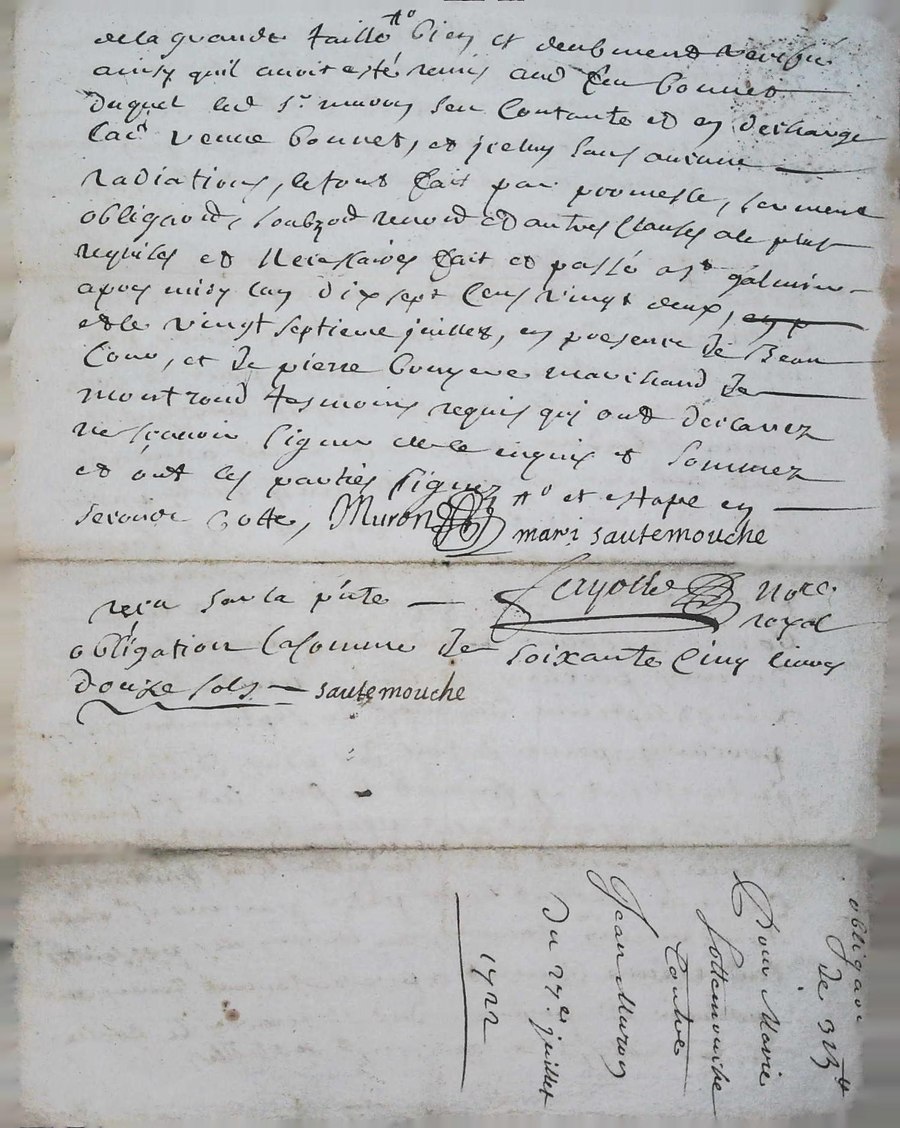 dela grande taille tto bien et deubment veriffié
ainsy quil avoit esté remis aud feu bonnet
duquel led sr muron sen contante et en descharge
lad venue bonnet, et jceluy sans aucune
radiations, le tout fait par promesse, serment
obligaon, soubz renon et autres clauses de plus
requises et necessaires fait et passé a st galmier
apres midy lan dix sept cens vingt deux,
et le vingt septieme juillet, en presence de
et de pierre marchand de
montrond tesmoins requis qui ont declarez
ne sçavoir signer de ce enquis et sommez
et ont les parties signez tto et en
seconde cotte, Muron mari sautemouche
reçu sur la pnte notre
royal
obligation la somme de soixante cinq livres
douze sols sautemouche
obligaon
de
Pour Marie
Sottemouche
Contre
Jean Muron
Du 27e juillet
1722